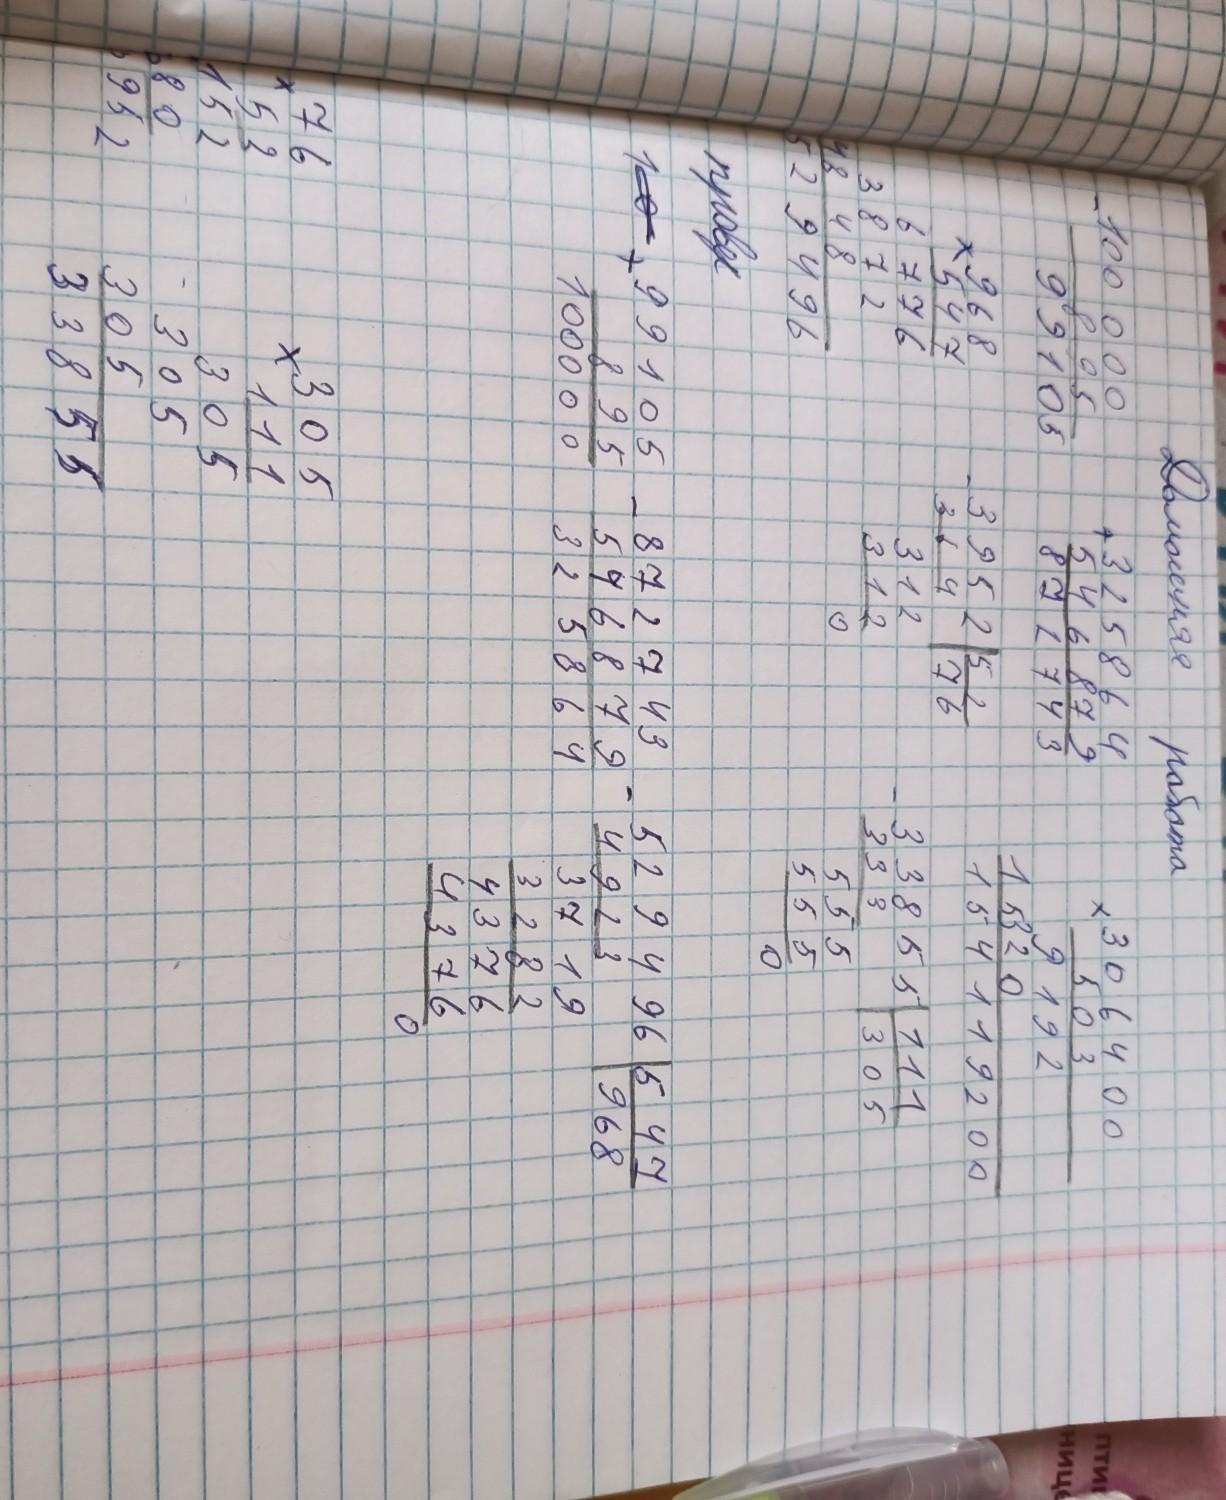 Домашняя работа
-100000
895
99105
+325864
546879
872743
×306400
503
9192
15320
154119200
×968
547
6776
3872
4848
529496
-3952 52
364 76
312
312
0
-33855 111
333 305
555
555
0
+99105
895
100000
-872743
546879
325864
-529496 547
4923 968
3719
3282
4376
4376
0
×76
52
152
380
3952
×305
111
305
305
305
33855